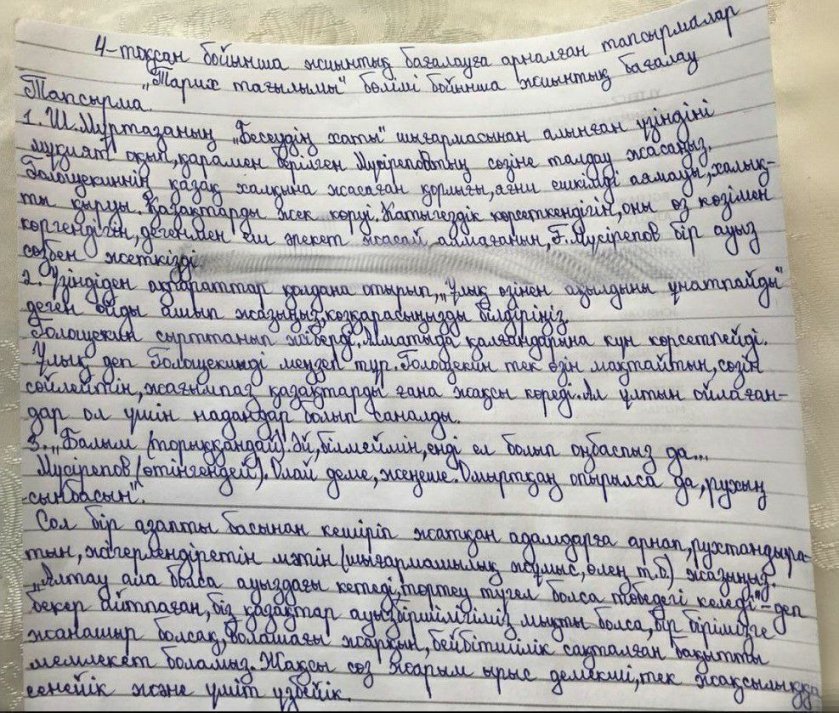 4-тоқсан бойынша жиынтық бағалауға арналған тапсырмалар
"Тарих тағылымы" бөлімі бойынша жиынтық бағалау
Тапсырма.
1. Ш.Мұртазаның "Бесеудің хаты" шығармасынан алынған үзіндіні
мұқият оқып, қарамен берілген Мүсіреповтың сөзіне талдау жасаңыз.
Голощекиннің қазақ халқына жасаған қорлығы, яғни ешкімді аямауы, халық-
ты қыруы. Қазақтарды жек көруі. Қатыгездік көрсеткендігін, оны өз көзімен
көргендігін, дегенмен еш әрекет жасай алмағанын, Ғ.Мүсірепов бір ауыз
сөзбен жеткізді
2. Үзіндіден ақпараттар қолдана отырып, "Ұлық өзінен ақылдыны ұнатпайды"
деген ойды ашып жазыңыз, көзқарасыңызды білдіріңіз.
Голощекин сырттанып жіберді, Алматыда қалғандарына күн көрсетпейді.
Ұлық деп Голощекинді меңзеп тұр. Голощекин тек өзін мақтайтын, сөзін
сөйлейтін, жағымпаз қазақтарды ғана жақсы көреді. Ал ұлтын ойлаған-
дар ол үшін надандар болып саналды.
3. "Балым (торыққандай). Әй, білмеймін, енді ел болып оңбаспыз да...
Мүсірепов (өтінгендей). Олай деме, жеңеше. Омыртқаң опырылса да, рухың
сынбасын".
Сол бір азапты басынан кешіріп жатқан адамдарға арнап, рухтандыра-
тын, жігерлендіретін мәтін (шығармашылық жұмыс, өлең т.б) жазыңыз.
"Алтау ала болса ауыздағы кетеді, төртеу түгел болса төбедегі келеді" - деп
бекер айтпаған, біз қазақтар ауызбіршілігіміз мықты болса, бір бірімізге
жанашыр болсақ, болашағы жарқын, бейбітшілік сақталған бақытты
мемлекет боламыз. Жақсы сөз жарым ырыс демекші, тек жақсылыққа
сенейік және үміт үзбейік.